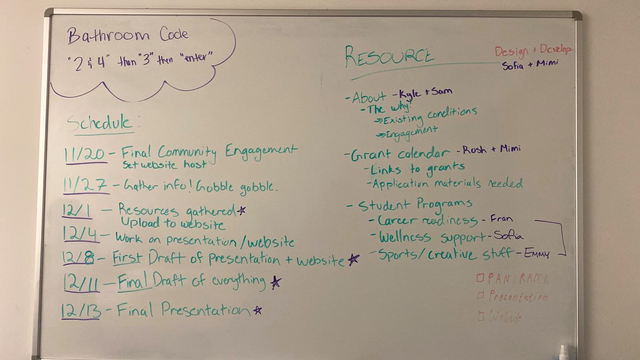 Bathroom Code
"2 & 4" then "3" then "enter"
Schedule:
11/20 - Final Community Engagement
Set website host
11/27 - Gather info! Gobble gobble.
12/1 - Resources gathered★
Upload to website
12/4 - Work on presentation/website
12/8 - First Draft of presentation + website ★
12/11 - Final Draft of everything ★
12/13 - Final Presentation ★
RESOURCE
Design + Develop
Sofia + Mimi
- About - Kyle + Sam
- The why!
⇒ Existing conditions
⇒ Engagement
- Grant calendar - Rosh + Mimi
- Links to grants
- Application materials needed
- Student Programs
- Career readiness - Fran
- Wellness support - Sofia
- Sports/creative stuff - Emmy
□ Presentation